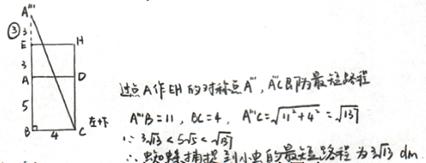 ③
A'''
3
E H
3
A D
5
B 4 C 左下
过点A作EH的对称点A''', A'''C即为最短路程
A'''B=11, BC=4, A'''C=√11²+4²=√137
∵ 3√13<5√5<√137
∴ 蜘蛛捕捉到小虫的最短路程为3√13 dm.